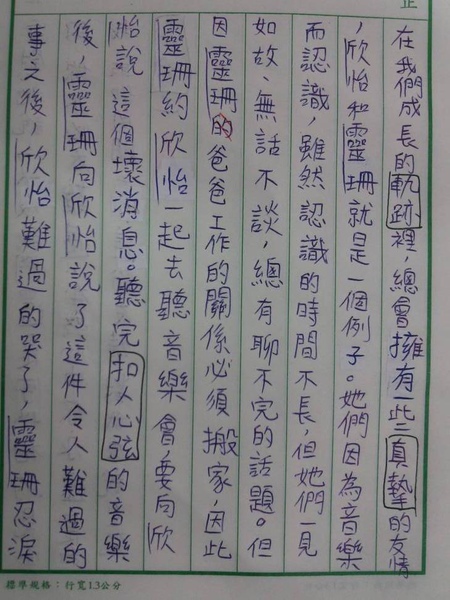 在我們成長的軌跡裡，總會擁有一些真摯的友情
，欣怡和靈珊就是一個例子。她們因為音樂
而認識，雖然認識的時間不長，但她們一見
如故、無話不談，總有聊不完的話題。但
因靈珊的爸爸工作的關係必須搬家，因此
靈珊約欣怡一起去聽音樂會，要向欣
怡說這個壞消息。聽完扣人心弦的音樂
後，靈珊向欣怡說了這件令人難過的
事之後，欣怡難過的哭了，靈珊忍淚
標準規格：行寬1.3公分